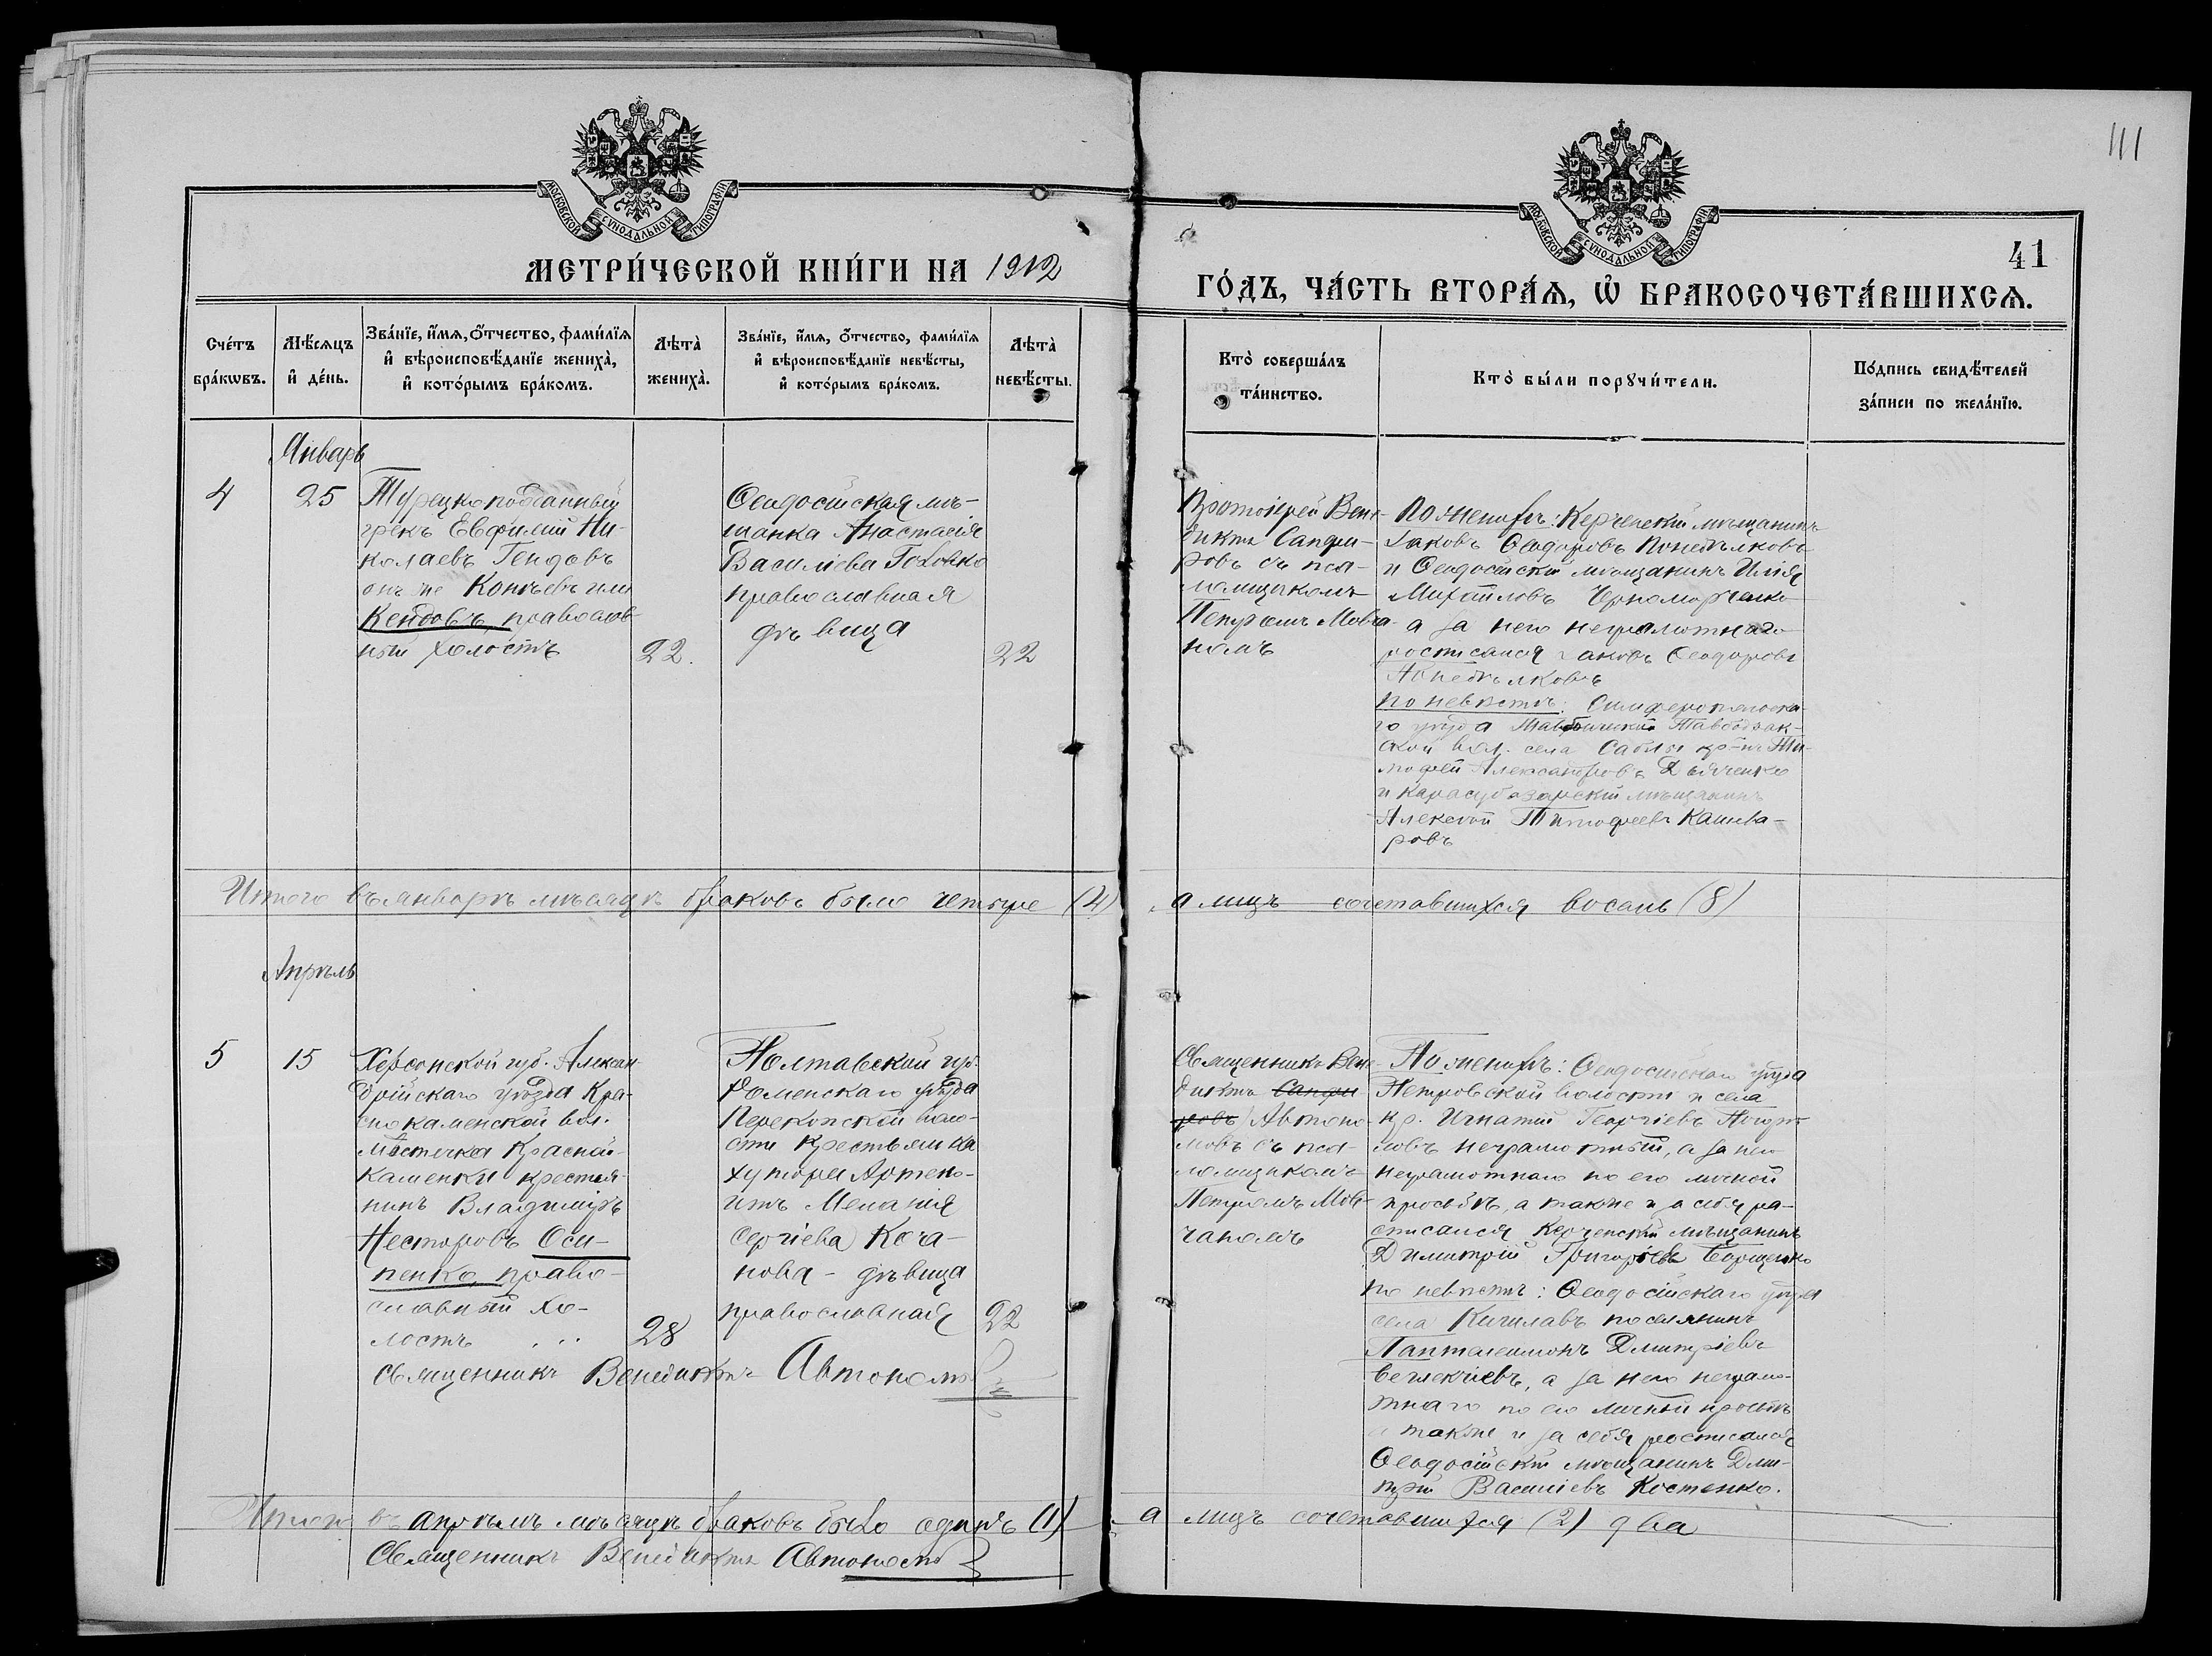 111
МОСКОВСКОЙ СѴНОДАЛЬНОЙ ТИПОГРАФІИ
МОСКОВСКОЙ СѴНОДАЛЬНОЙ ТИПОГРАФІИ
41
МЕТРИ́ЧЕСКОЙ КНИ́ГИ НА 1912
ГО́ДЪ, ЧА́СТЬ ВТОРА́Ѧ, Ѡ҆ БРАКОСОЧЕТА́ВШИХСѦ.
Сче́тъ
бра́кѡвъ.
Мѣ́сѧцъ
и҆ де́нь.
Зва́нїе, и҆́мѧ, ѻ҆́тчество, фами́лїѧ
и҆ вѣроисповѣ́данїе жениха̀,
и҆ кото́рымъ бра́комъ.
Лѣта̀
жениха̀.
Зва́нїе, и҆́мѧ, ѻ҆́тчество, фами́лїѧ
и҆ вѣроисповѣ́данїе невѣ́сты,
и҆ кото́рымъ бра́комъ.
Лѣта̀
невѣ́сты.
Кто̀ соверша́лъ
та́инство.
Кто̀ бы́ли порꙋчи́тели.
По́дпись свидѣ́телей
за́писи по жела́нїю.
Январь
4
25
Турецкоподданный
грекъ Евфимій Ни-
колаевъ Гендовъ
онъ же Контьевъ или
Кендовъ, православ-
ный холостъ
22.
Ѳеодосійская мѣ-
щанка Анастасія
Васильева Головко
православная
дѣвица
22
Протоіерей Вене-
диктъ
ровъ съ пса-
ломщикомъ
Петромъ Мовча-
номъ
По женихѣ: Керченскій мѣщанинъ
Іаковъ Ѳеодоровъ Понедѣлковъ
и Ѳеодосійскій мѣщанинъ Илія
Михайловъ Черноморченко
а за него неграмотнаго
росписался Іаковъ Ѳеодоровъ
Понедѣлковъ
По невѣстѣ: Симферопольска-
го уѣзда
ской вол. села Саблы кр-нъ Ти-
мофей Александровъ Дьяченко
и Карасубазарскій мѣщанинъ
Алексѣй Тимофеевъ Кашка-
ровъ
Итого въ январѣ мѣсяцѣ браковъ было четыре (4)
а лицъ сочетавшихся восемь (8)
Апрѣль
5
15
Херсонской губ. Алексан-
дрійскаго уѣзда Кра-
снокаменской вол.
мѣстечка Красной-
Каменки крестья-
нинъ Владиміръ
Несторовъ Оси-
пенко, право-
славный хо-
лостъ
28
Полтавской губ.
Роменскаго уѣзда
Перекопской воло-
сти крестьянка
хутора
Меланія
Сергіева Коча-
нова - дѣвица
православная
22
Священникъ Вене-
диктъ
Автоно-
мовъ съ пса-
ломщикомъ
Петромъ Мов-
чаномъ
По женихѣ: Ѳеодосійскаго уѣзда
Петровской волости и села
кр. Игнатій Георгіевъ
ловъ неграмотный, а за него
неграмотнаго по его личной
просьбѣ, а также и за себя ра-
списался Керченскій мѣщанинъ
Димитрій Григорьевъ Борщенко
По невѣстѣ: Ѳеодосійскаго уѣзда
села Кишлавъ поселянинъ
Панталеимонъ Димитріевъ
а за него неграмо-
тнаго по его личной просьбѣ
а также и за себя росписался
Ѳеодосійскій мѣщанинъ Дми-
трій Васильевъ Костенко.
Священникъ Венедиктъ Автономовъ
Итого въ апрѣлѣ мѣсяцѣ браковъ было одинъ (1)
а лицъ сочетавшихся (2) два
Священникъ Венедиктъ Автономовъ